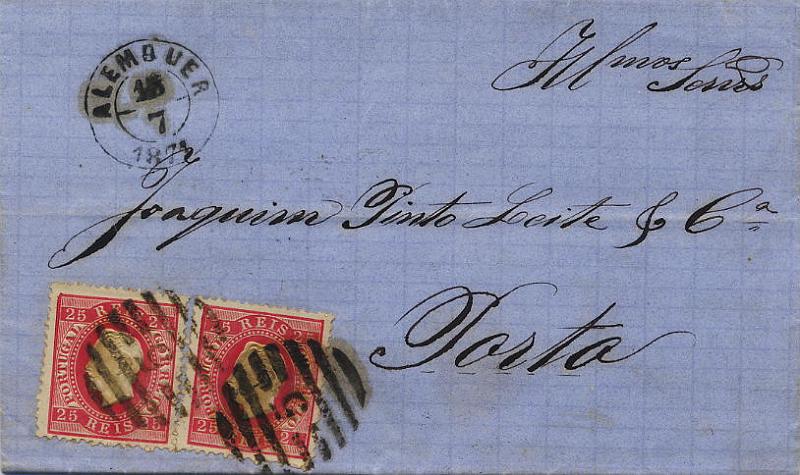 ALEMQUER
16
7
1871
Illmos Senrs
Joaquim Pinto Leite & Ca
Porto
25 REIS 25
PORTUGAL
CORREIO
25 REIS
25 REIS 25
PORTUGAL
25 REIS 25